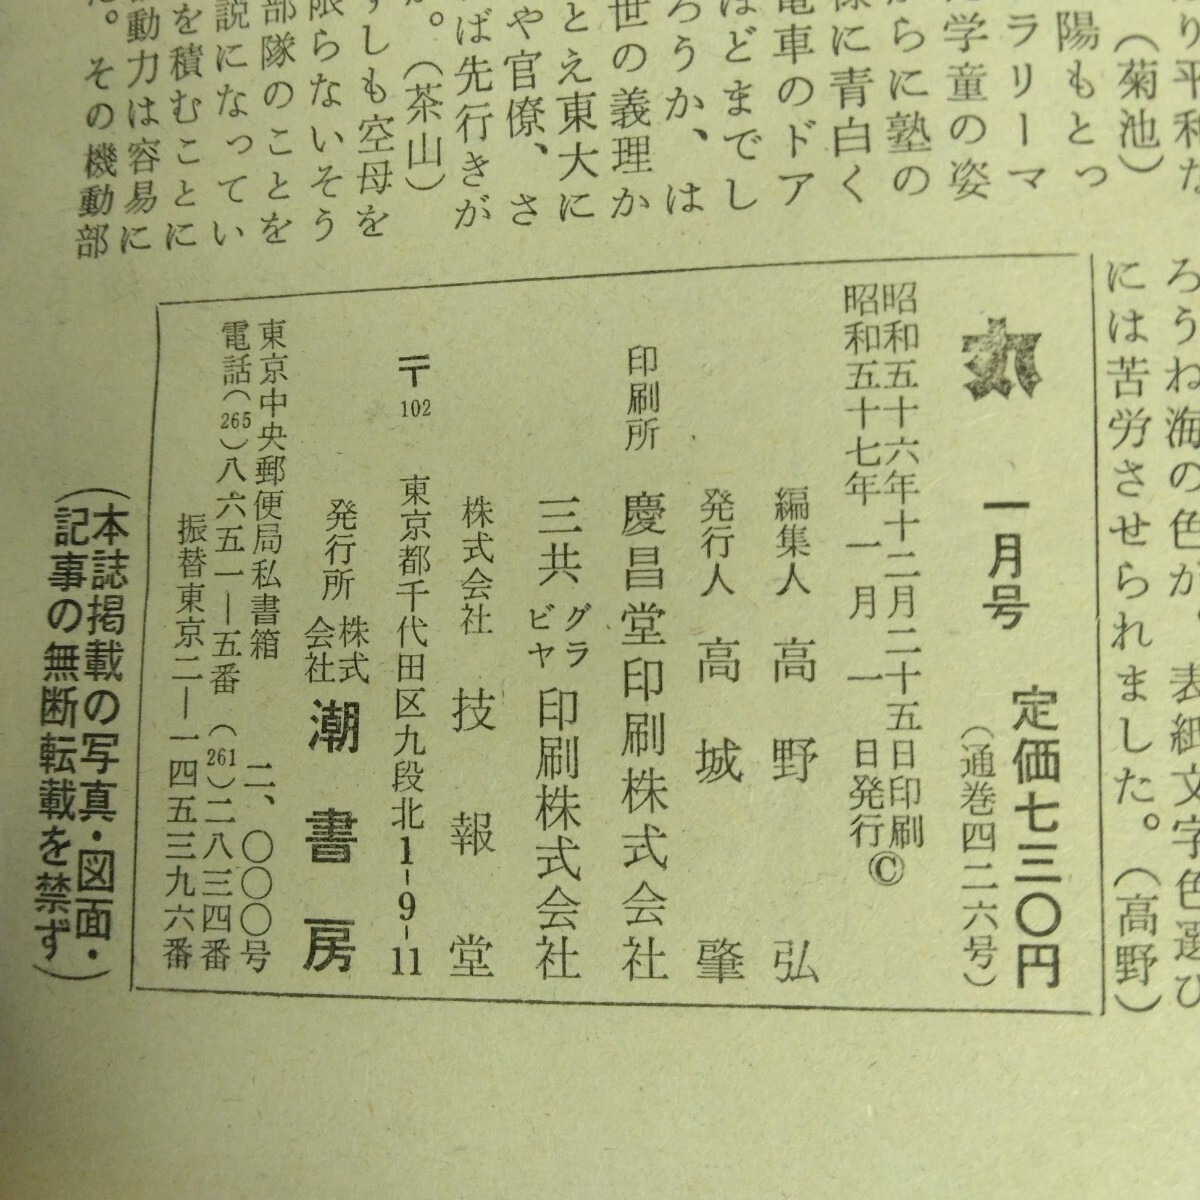 り平和な
（菊池）
陽もとっ
ラリーマ
学童の姿
らに塾の
様に青白く
電車のドア
はどまでし
ろうか、は
世の義理か
とえ東大に
や官僚、さ
ば先行きが
（茶山）
ずしも空母を
限らないそう
部隊のことを
説になってい
を積むことに
動力は容易に
。その機動部
ろうね海の色が、表紙文字色選び
には苦労させられました。（高野）
丸 一月号 定価七三〇円
（通巻四二六号）
昭和五十六年十二月二十五日印刷
昭和五十七年 一月 一日発行©
編集人 高野 弘
発行人 高城 肇
印刷所 慶昌堂印刷株式会社
三共グラビヤ印刷株式会社
株式会社 技報堂
〒102 東京都千代田区九段北1-9-11
発行所 株式会社 潮書房
東京中央郵便局私書箱 二、〇〇〇号
電話（265）八六五一―五番（261）二八三四番
振替東京二―一四五三九六番
（本誌掲載の写真・図面・
記事の無断転載を禁ず）